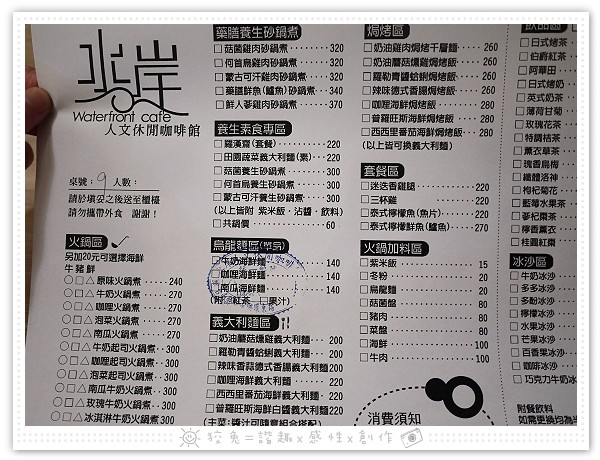 水岸
Waterfront café
人文休閒咖啡館
桌號：9 人數：
請於填妥之後送至櫃檯
請勿攜帶外食 謝謝！
火鍋區
另加20元可選擇海鮮
牛 豬 鮮
○□△原味火鍋煮 240
○□△牛奶火鍋煮 270
○□△咖哩火鍋煮 270
○□△泡菜火鍋煮 270
○□△南瓜火鍋煮 270
○□△牛奶起司火鍋煮 300
○□△咖哩起司火鍋煮 300
○□△泡菜起司火鍋煮 300
○□△南瓜牛奶火鍋煮 300
○□△玫瑰牛奶火鍋煮 300
○□△冰淇淋牛奶火鍋煮 300
藥膳養生砂鍋煮
□菇菌雞肉砂鍋煮 320
□何首烏雞肉砂鍋煮 320
□蒙古可汗雞肉砂鍋煮 320
□藥膳鮮魚(鱸魚)砂鍋煮 340
□鮮人蔘雞肉砂鍋煮 320
養生素食專區
□羅漢齋(套餐) 220
□田園蔬菜義大利麵(素) 220
□菇菌養生砂鍋煮 300
□何首烏養生砂鍋煮 300
□蒙古可汗養生砂鍋煮 300
(以上皆附 紫米飯‧沾醬‧飲料)
□共鍋價 60
烏龍麵區(單點)
□牛奶海鮮麵 140
□咖哩海鮮麵 140
□南瓜海鮮麵 140
(附 □紅茶 □果汁)
義大利麵區
□奶油蘑菇燻雞義大利麵 200
□羅勒青醬蛤蜊義大利麵 200
□辣味香蒜德式香腸義大利麵 200
□咖哩海鮮義大利麵 200
□西西里番茄海鮮義大利麵 200
□普羅旺斯海鮮白醬義大利麵 200
(主菜：醬汁可隨意組合搭配)
焗烤區
□奶油雞肉焗烤千層麵 260
□奶油蘑菇燻雞焗烤飯 260
□羅勒青醬蛤蜊焗烤飯 260
□辣味德式香腸焗烤飯 260
□咖哩海鮮焗烤飯 280
□普羅旺斯海鮮焗烤飯 280
□西西里番茄海鮮焗烤飯 280
(以上皆可換義大利麵)
套餐區
□迷迭香雞腿 220
□三杯雞 220
□泰式檸檬魚(魚片) 220
□泰式檸檬鮮魚(鱸魚) 270
火鍋加料區
□紫米飯 15
□冬粉 20
□烏龍麵 20
□菇菌盤 80
□豬肉 80
□菜盤 80
□海鮮 100
□牛肉 100
消費須知
飲品區
□日式烤茶
□伯爵紅茶
□阿華田
□日式烤奶
□英式奶茶
□薄荷甘菊
□玫瑰花茶
□特調桔茶
□薰衣草茶
□瑰香烏梅
□纖體洛神
□枸杞菊花
□藍莓水果茶
□蔘杞棗茶
□檸香薰衣
□桂圓紅棗
冰沙區
□牛奶冰沙
□多多冰沙
□多酚冰沙
□檸檬冰沙
□水果冰沙
□芒果冰沙
□百香果冰沙
□咖啡冰沙
□巧克力牛奶冰
附餐飲料
如需更換均為半
狡兔=諧趣x感性x創作